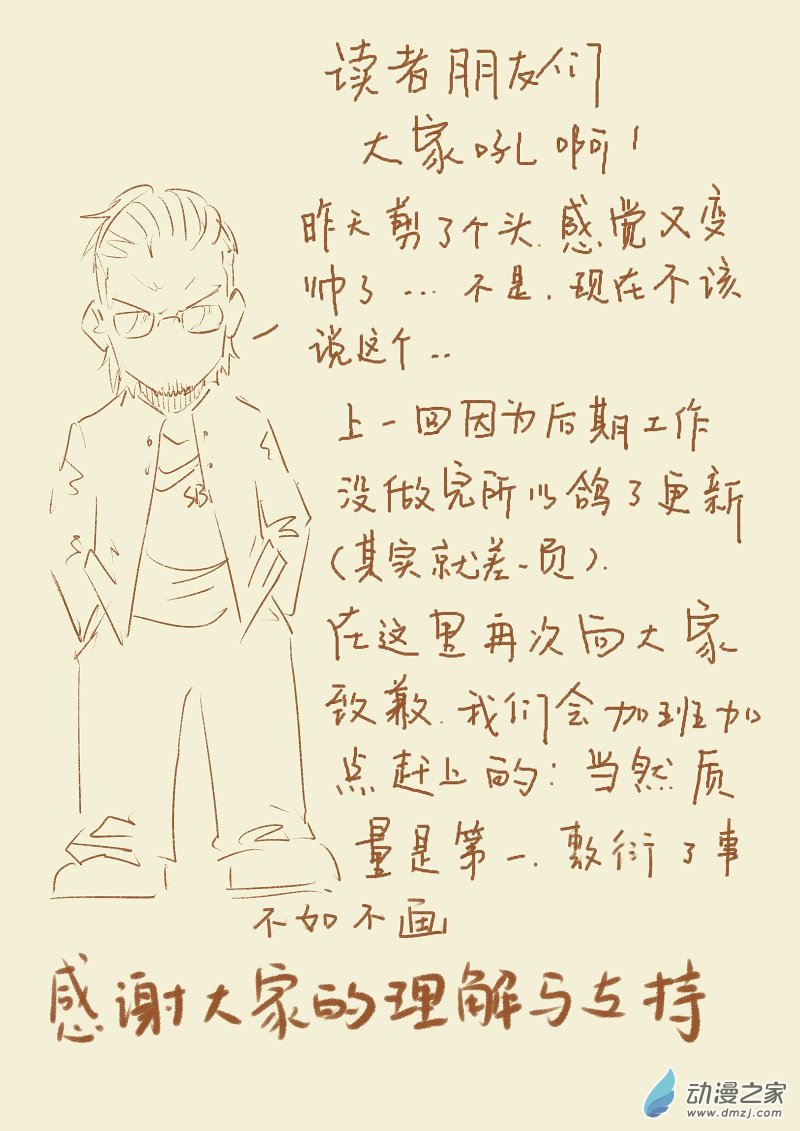 读者朋友们
大家吼啊！
昨天剪了个头.感觉又变
帅了...不是.现在不该
说这个..
上一回因为后期工作
没做完所以鸽了更新
(其实就差一页).
在这里再次向大家
致歉.我们会加班加
点赶上的:当然质
量是第一.敷衍了事
不如不画
感谢大家的理解与支持
SB
动漫之家
www.dmzj.com